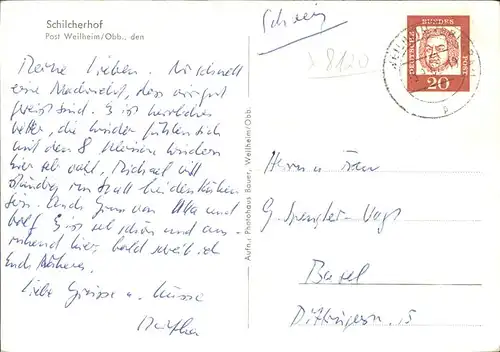 Schilcherhof
Post Weilheim/Obb., den
Meine Lieben. Nur schnell
eine Nachricht, dass wir gut
gereist sind. Es ist herrliches
Wetter, die Kinder fühlen sich
mit den 8 kleinen Kindern
hier sehr wohl, Michael will
ständig im Stall bei den Kühen
sein. Auch Gruss von Ulla und
Es ist schön und
hier, bald schreib ich
Euch Näheres.
Liebe Grüsse u. Küsse
Aufn.: Photohaus Bauer, Weilheim/Obb.
Schweiz
8120
DEUTSCHE BUNDESPOST
20
Herrn u. Frau
G. Spengler-Vogt
Basel
15